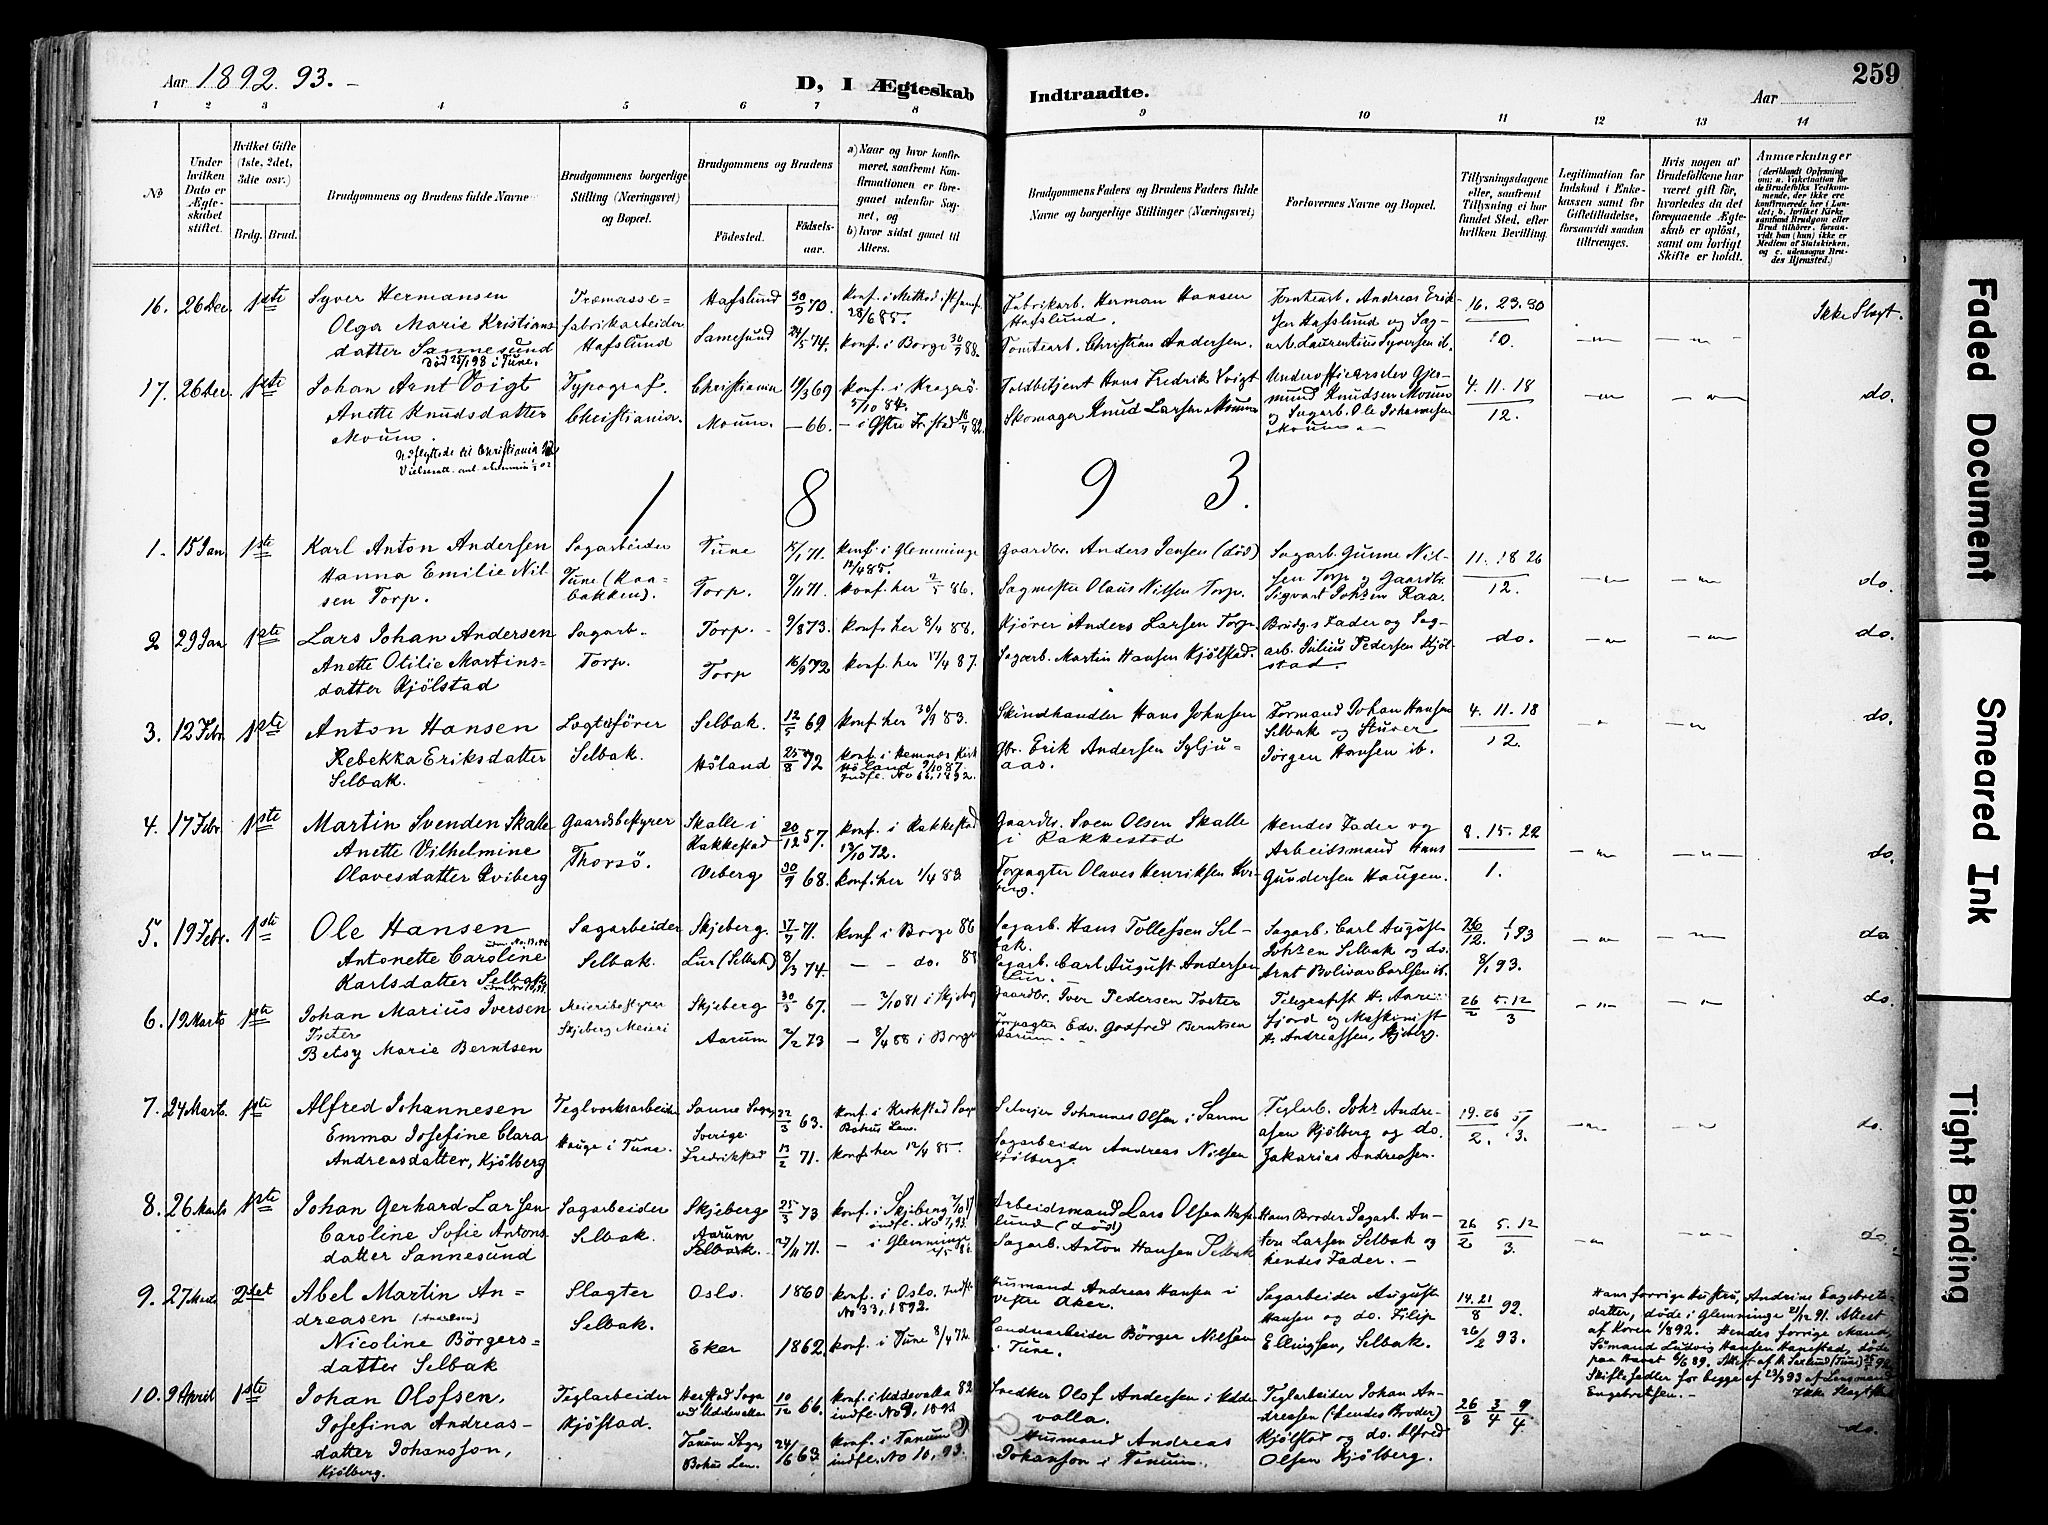 Aar 1892. 93. -
D, I Ægteskab Indtraadte.
Aar
259
1 2 3 4 5 6 7 8 9 10 11 12 13 14
No
Under hvilken Dato er Ægteskabet stiftet.
Hvilket Gifte (1ste, 2det, 3die osv.)
Brdg. Brud.
Brudgommens og Brudens fulde Navne
Brudgommens borgerlige Stilling (Næringsvei) og Bopæl.
Brudgommens og Brudens
Fødested.
Fødselsaar.
a) Naar og hvor konfirmeret, saafremt Konfirmationen er foregaaet udenfor Sognet, og
b) hvor sidst gaaet til Alters.
Brudgommens Faders og Brudens Faders fulde Navne og borgerlige Stillinger (Næringsvei)
Forlovernes Navne og Bopæl.
Tillysningsdagene eller, saafremt Tillysning ei har fundet Sted, efter hvilken Bevilling.
Legitimation for Indskud i Enkekassen samt for Giftetilladelse, forsaavidt saadan tiltrænges.
Hvis nogen af Brudefolkene har været gift før, hvorledes da det foregaaende Ægteskab er opløst, samt om lovligt Skifte er holdt.
Anmærkninger (deriblandt Oplysning om: a. Vakcination for de Brudefolks Vedkommende, der ikke ere konfirmerede her i Landet; b. hvilket Kirkesamfund Brudgom eller Brud tilhører, forsaavidt han (hun) ikke er Medlem af Statskirken, og c. udensogns Brudes Hjemsted.)
16. 26 Dec. 1ste Syver Hermansen Træmasse- Hafslund 30/5 70 Fabrikarb. Herman Hansen Tomtearb. Andreas Erik- 16. 23. 30 Ikke Slægt.
Olga Marie Kristians- fabrikarbeider 28/6 85. Hafslund. sen Hafslund og Sag-
datter Sannesund Hafslund Sannesund 24/5 74. konf. i Borge 30/9 88. Tomtearb. Christian Andersen. arb. Laurentius Syversen ib. 10.
17. 26 Dec. 1ste Johan Arnt Voigt Typograf. Christiania 19/3 69 konf. i Kragerö Toldbetjent Hans Fredrik Voigt 4. 11. 18 do.
Anette Knudsdatter Christiania. 5/10 84. Skomager Knud Larsen Moum mund Knudsen Moum 12.
Moum. Moum. - 66. og Sagarb. Ole Johannesen
1893.
1. 15 Jan. 1ste Karl Anton Andersen Sagarbeider Tune 15/1 71. konf. i Glemminge Gaardbr. Anders Jensen (död) Sagarb. Gunne Nil- 11. 18 26
Hanna Emilie Nil- Tune (Raa- 12/4 85. sen Torp og Gaardbr. 12. do.
sen Torp. bakken). Torp. 9/11 71. konf. her 2/5 86. Sagmester Olaus Nilsen Torp. Sigvart Johsen Raa.
2 29 Jan 1ste Lars Johan Andersen Sagarb. Torp. 9/8 73. konf. her 8/4 88. Kjører Anders Larsen Torp. Brudg.s Fader og Sag- do. do.
Anette Otilie Martins- Torp. Torp 16/9 72 konf. her 17/4 87. Sagarb. Martin Hansen Kjölstad. arb. Julius Pedersen Kjöl-
datter Kjölstad stad.
3. 12 Febr. 1ste Anton Hansen Logtefører Selbak. 12/5 69 konf. her 30/9 83. Skindhandler Hans Johnsen Formand Johan Hansen 4. 11. 18 do.
Rebekka Eriksdatter Selbak. Höland 25/8 72 konf. i Hemnæs Kirke Gbr. Erik Andersen Selbak og Stuver 12.
Selbak. Höland 9/10 87. Indfl. No 66. 1892. Jørgen Hansen ib.
4. 17 Febr. 1ste Martin Svenden Skalle Gaardsbestyrer Skalle i 20/12 57. konf. i Rakkestad Gaardbr. Sven Olsen Skalle Hendes Fader og 8. 15. 22
Anette Vilhelmine Thorsö. Rakkestad 13/10 72. i Rakkestad Arbeidsmand Hans 1. do.
Olavesdatter Kviberg Veberg 30/9 68. konf. her 1/4 83. Torpagter Olaves Henriksen Kvi- berg. Gundersen Haugen.
5. 19 Febr. 1ste Ole Hansen Sagarbeider Skjeberg. 17/7 71. konf i Borge 86 Sagarb. Hans Tollefsen Sel- bak. Sagarb. Carl August 26/12. 1/1 93 do
Antonette Caroline Selbak. Lur (Selbak) 8/3 74. - - do. 88 Sagarb. Carl August Andersen Johsen Selbak og do. 8/1 93.
Karlsdatter Selbak Lur. Arnt Bolivar Carlsen ib.
6. 19 Marts 1ste Johan Marius Iversen Meieribestyrer Skjeberg 30/3 67. - 2/10 81 i Skjeb. Gaardbr. Iver Pedersen Tveter Telegrafist H. Aare- 26/2 5. 12/3 do.
Tveter Skjeberg Meieri fjord og Maskinist
Betsy Marie Berntsen Aarum 2/2 73 - 8/4 88 i Borge Torpagter Edv. Godfred Berntsen Aarum. H. Andreassen, Skjeberg.
7. 24 Marts 1ste Alfred Johannesen Teglværksarbeider Sanne Sogn 22/3 63. konf. i Krokstad Sogn Selveier Johannes Olsen i Sanne Teglarb. Johs Andre- 19. 26/2. 5/3. do.
Emma Josefine Clara Hauge i Tune. Sverige Bohus Len. asen Kjölberg og do.
Andreasdatter, Kjölberg Fredrikstad 13/2 71. konf her 12/4 85. Sagarbeider Andreas Nilsen Kjölberg. Zakarias Andreasen.
8. 26 Marts 1ste Johan Gerhard Larsen Sagarbeider Skjeberg 25/3 73 konf. i Skjeberg indfl. No 7, 93. Arbeidsmand Lars Olsen Hafs- lund (död) Hans Broder Sagarb. An- 26/2 5. 12/3. do.
Caroline Sofie Antons- Selbak. Aarum ton Larsen Selbak og
datter Sannesund Selbak. 27/11 71. - i Glemminge Sagarb. Anton Hansen Selbak hendes Fader. -
9. 27 Marts 2det Abel Martin An- Slagter Oslo. 1860 konf. i Oslo. Indfl. Husmand Andreas Hansen i Sagarbeider August 14. 21/8 92.
dreasen Selbak. No 33, 1892. Vestre Aker. Hansen og do. Filip
Nicoline Börgers- Eker 1862. konf. i Tune 8/4 72. Landarbeider Börger Nilsen i Tune. Ellingsen, Selbak. 26/2 93.
datter Selbak
Hans forrige hustru, Andrine Engebrets-
datter, döde i Glemminge 21/12 91. Attest
af Koren 1/8 92. Hendes forrige Mand,
Sömand Ludvig Hansen Hanestad, döde
paa Havet 6/6 89.
Skiftesedler for begge af 23/3 93 af Lensmand
Engebretsen. - Ikke Slægtskab
10. 9 April 1ste Johan Olofsen, Teglarbeider Herstad Sogn 10/12 66. konf. i Uddevalla 82 Snedker Olof Andersen i Udde- Teglarbeider Johan An- 26/8 3/4 9/4
Josefina Andreas- Kjölstad. ved Uddevalla indfl. No 9, 1893 valla. dreasen (hendes Broder) do.
datter Johansson, Tanum Sogn, 24/6 63. konf. i Tanum Husmand Andreas Kjölstad og do. Alfred
Kjölberg. Bohus Len. indfl. No 10, 93. Johanson i Tanum. Olsen Kjölberg.
Faded Document
Smeared Ink
Tight Binding